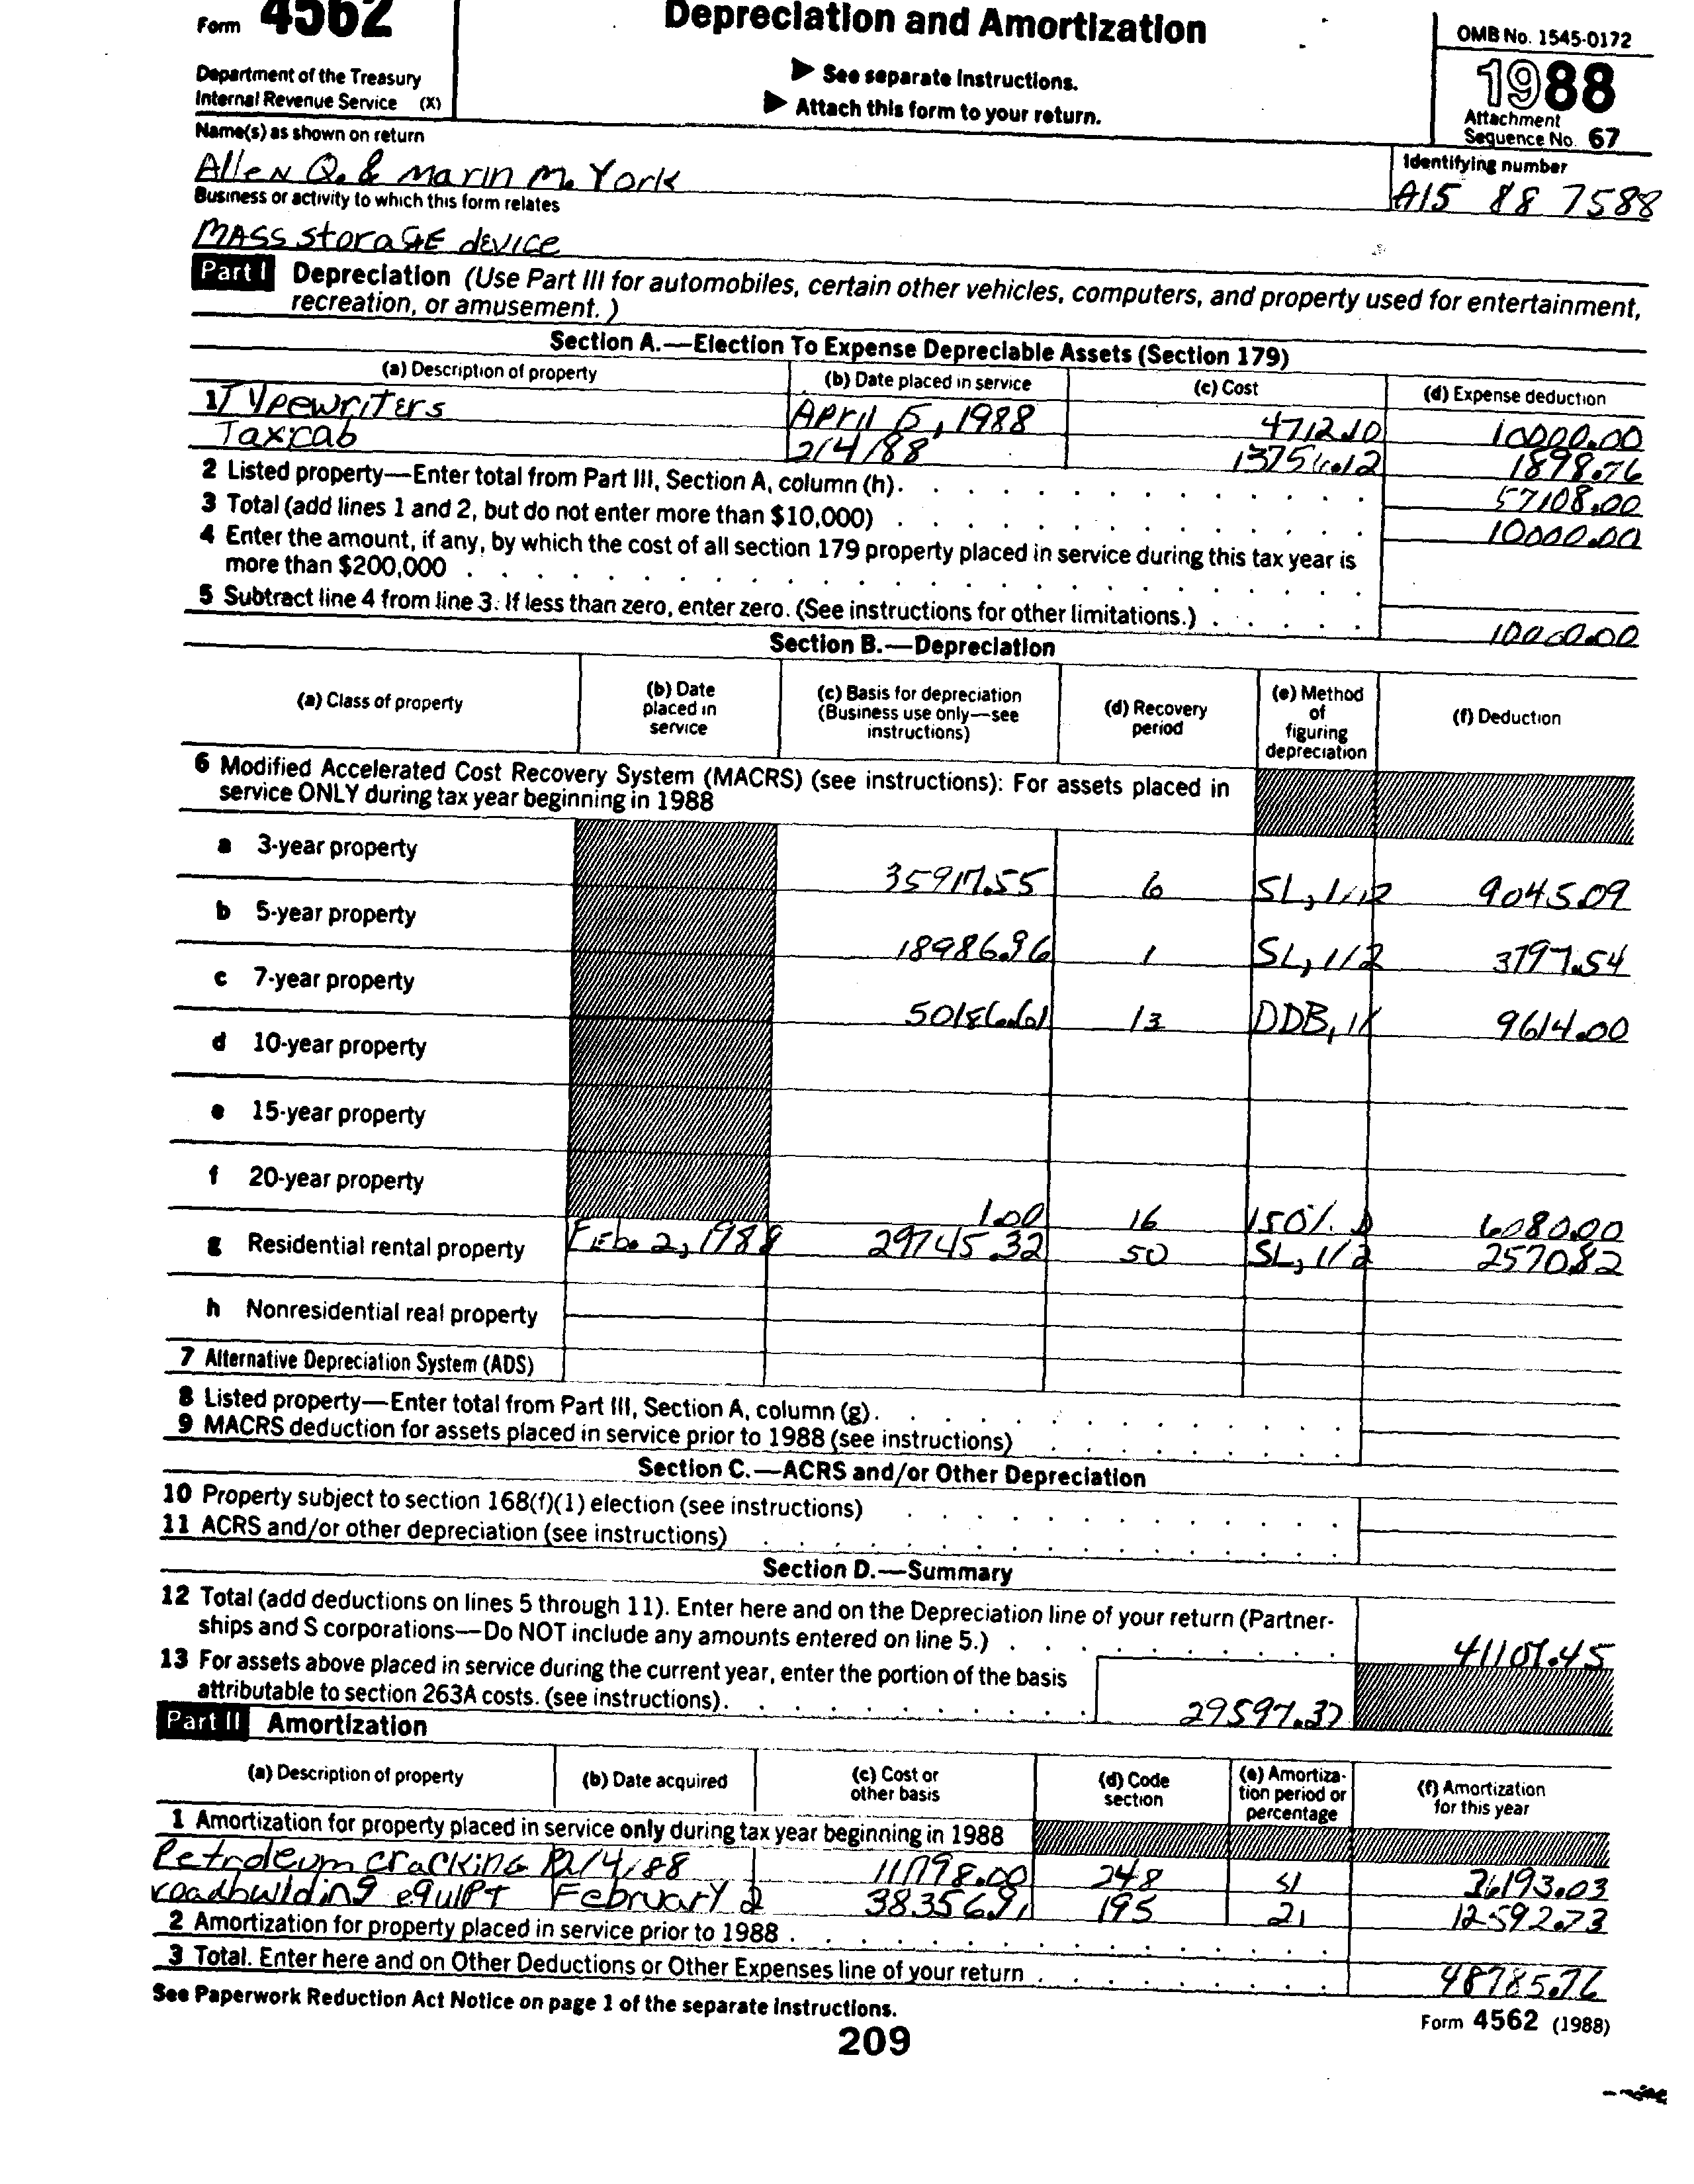 Form 4562
Depreciation and Amortization
OMB No. 1545-0172
Department of the Treasury
Internal Revenue Service (X)
▶ See separate instructions.
▶ Attach this form to your return.
1988
Attachment
Sequence No. 67
Name(s) as shown on return
Identifying number
Allen Q. & Marin M. York
A15 88 7588
Business or activity to which this form relates
MASS storaGE device
Part I Depreciation (Use Part III for automobiles, certain other vehicles, computers, and property used for entertainment,
recreation, or amusement.)
Section A.—Election To Expense Depreciable Assets (Section 179)
(a) Description of property (b) Date placed in service (c) Cost (d) Expense deduction
1 Typewriters April 5, 1988 4712.10 10000.00
Taxicab 2/4/88 1898.76
2 Listed property—Enter total from Part III, Section A, column (h). 57108.00
3 Total (add lines 1 and 2, but do not enter more than $10,000) 10000.00
4 Enter the amount, if any, by which the cost of all section 179 property placed in service during this tax year is
more than $200,000
5 Subtract line 4 from line 3. If less than zero, enter zero. (See instructions for other limitations.) 10000.00
Section B.—Depreciation
(a) Class of property
(b) Date placed in service
(c) Basis for depreciation (Business use only—see instructions)
(d) Recovery period
(e) Method of figuring depreciation
(f) Deduction
6 Modified Accelerated Cost Recovery System (MACRS) (see instructions): For assets placed in
service ONLY during tax year beginning in 1988
a 3-year property 35917.55 6 SL, 1/12 9045.09
b 5-year property 18986.96 1 SL, 1/2 3797.54
c 7-year property 50186.61 13 DDB, 9614.00
d 10-year property
e 15-year property
f 20-year property 1.00 16 150% D 6080.00
g Residential rental property Feb. 2, 1988 29745.32 50 SL, 1/2 2570.82
h Nonresidential real property
7 Alternative Depreciation System (ADS)
8 Listed property—Enter total from Part III, Section A, column (g).
9 MACRS deduction for assets placed in service prior to 1988 (see instructions)
Section C.—ACRS and/or Other Depreciation
10 Property subject to section 168(f)(1) election (see instructions)
11 ACRS and/or other depreciation (see instructions)
Section D.—Summary
12 Total (add deductions on lines 5 through 11). Enter here and on the Depreciation line of your return (Partner-
ships and S corporations—Do NOT include any amounts entered on line 5.) 41107.45
13 For assets above placed in service during the current year, enter the portion of the basis
attributable to section 263A costs. (see instructions). 29597.37
Part II Amortization
(a) Description of property
(b) Date acquired
(c) Cost or other basis
(d) Code section
(e) Amortiza-tion period or percentage
(f) Amortization for this year
1 Amortization for property placed in service only during tax year beginning in 1988
Petroleum cracking 248 51 36193.03
roadbuilding equipt February 2 195 21 12592.73
2 Amortization for property placed in service prior to 1988
3 Total. Enter here and on Other Deductions or Other Expenses line of your return 48785.76
See Paperwork Reduction Act Notice on page 1 of the separate instructions.
Form 4562 (1988)
209